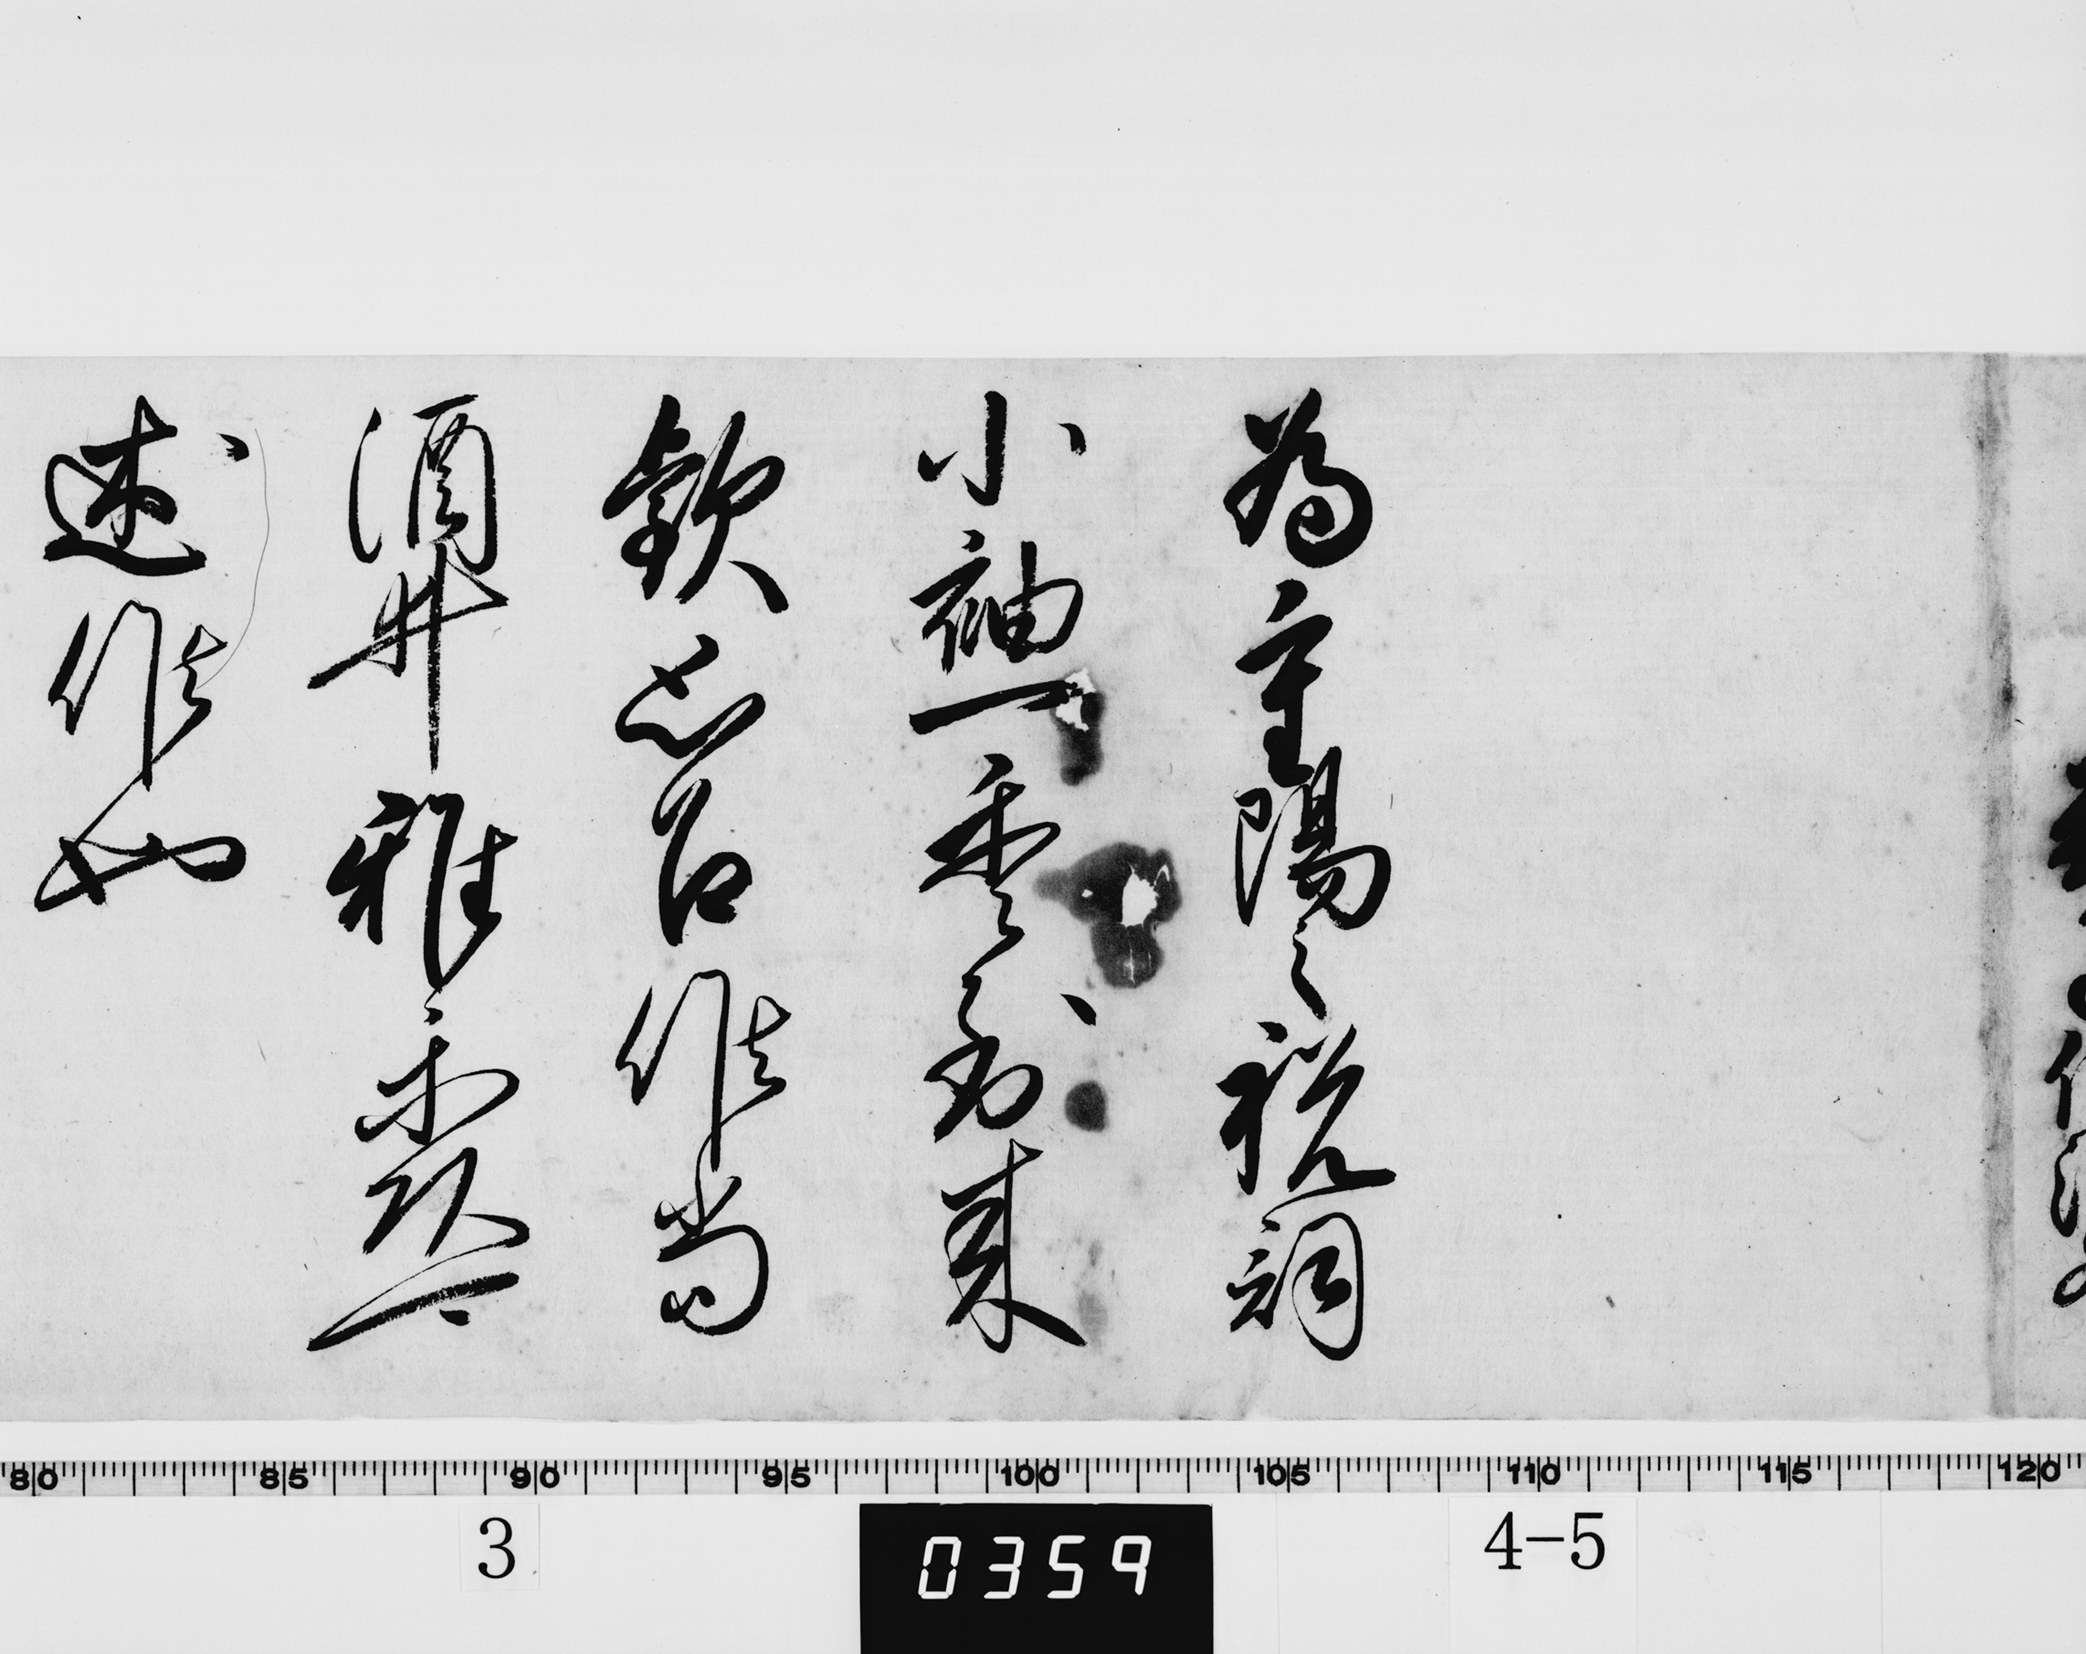 為重陽之祝詞
小袖一重到来
歓思召候尚
酒井雅楽頭可
述候也
80 85 90 95 100 105 110 115 120
3 0359 4-5